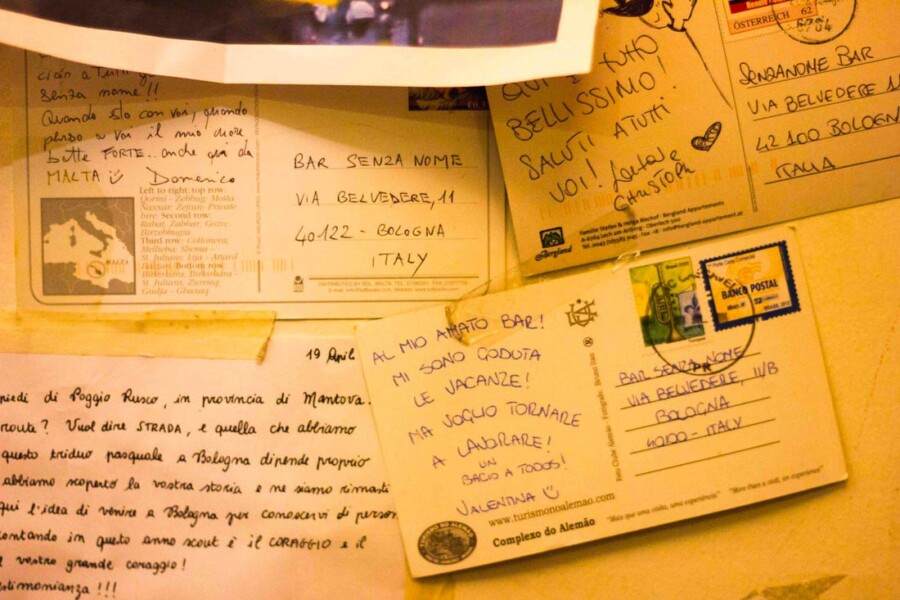 senza nome!!
Quando sto con voi, quando
penso a voi il mio cuore
batte FORTE.. anche qui da
MALTA Domenico
Left to right: top row:
Qormi - Zebbug, Mosta
Naxxar, Zejtun, Private
bire: Second row:
Rabat, Zabbar, Gozo,
Birzebbugia
Third row:
St. Julians,
Bottom row:
Birkirkara,
St. Julians,
Gudja - Ghaxaq
MALTA
BAR SENZA NOME
VIA BELVEDERE, 11
40122 - BOLOGNA
ITALY
QUI È TUTTO
BELLISSIMO!
SALUTI A TUTTI
VOI!
CHRISTOPH
Bergland
ÖSTERREICH 62
SENZANOME BAR
VIA BELVEDERE 11
42100 BOLOGN
ITALIA
19 Aprile
piedi di Poggio Rusco, in provincia di Mantova.
route? Vuol dire STRADA, e quella che abbiamo
questo triduo pasquale a Bologna dipende proprio
abbiamo scoperto la vostra storia e ne siamo rimasti
qui l'idea di venire a Bologna per conoscervi di person
contando in questo anno scout è il CORAGGIO e il
vostro grande coraggio!
stimonianza!!!
AL MIO AMATO BAR!
MI SONO GODUTA
LE VACANZE!
MA VOGLIO TORNARE
A LAVORARE!
UN
BACIO A TODOS!
VALENTINA
www.turismonoalemao.com
Complexo do Alemão
"Mais que uma visita, uma experiência"
"More than a visit, an experience"
BANCO POSTAL
BAR SENZA NOME
VIA BELVEDERE, 11/B
BOLOGNA
40100 - ITALY